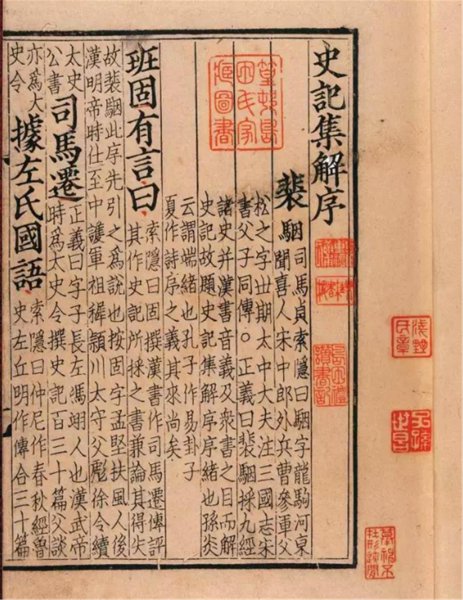 史記集解序
裴駰
司馬貞索隱曰駰字龍駒河東
聞喜人宋中郎外兵曹參軍父
松之字世期太中大夫注三國志宋
書父子同傳○正義曰裴駰採九經
諸史并漢書音義及衆書之目而解
史記故題史記集解序序緒也孫炎
云謂端緒也孔子作易卦子
夏作詩序之義其來尚矣
班固有言曰
索隱曰固撰漢書作司馬遷傳評
其作史記所採之書兼論其得失
故裴駰此序先引之爲說也按固字孟堅扶風人後
漢明帝時仕至中護軍祖穉潁川太守父彪徐令續
太史
公書
司馬遷
正義曰字子長左馮翊人也漢武帝
時爲太史令撰史記百三十篇父談
亦爲太
史令
據左氏國語
索隱曰仲尼作春秋經魯
史左丘明作傳合三十篇
篁邨島
田氏家
藏圖書